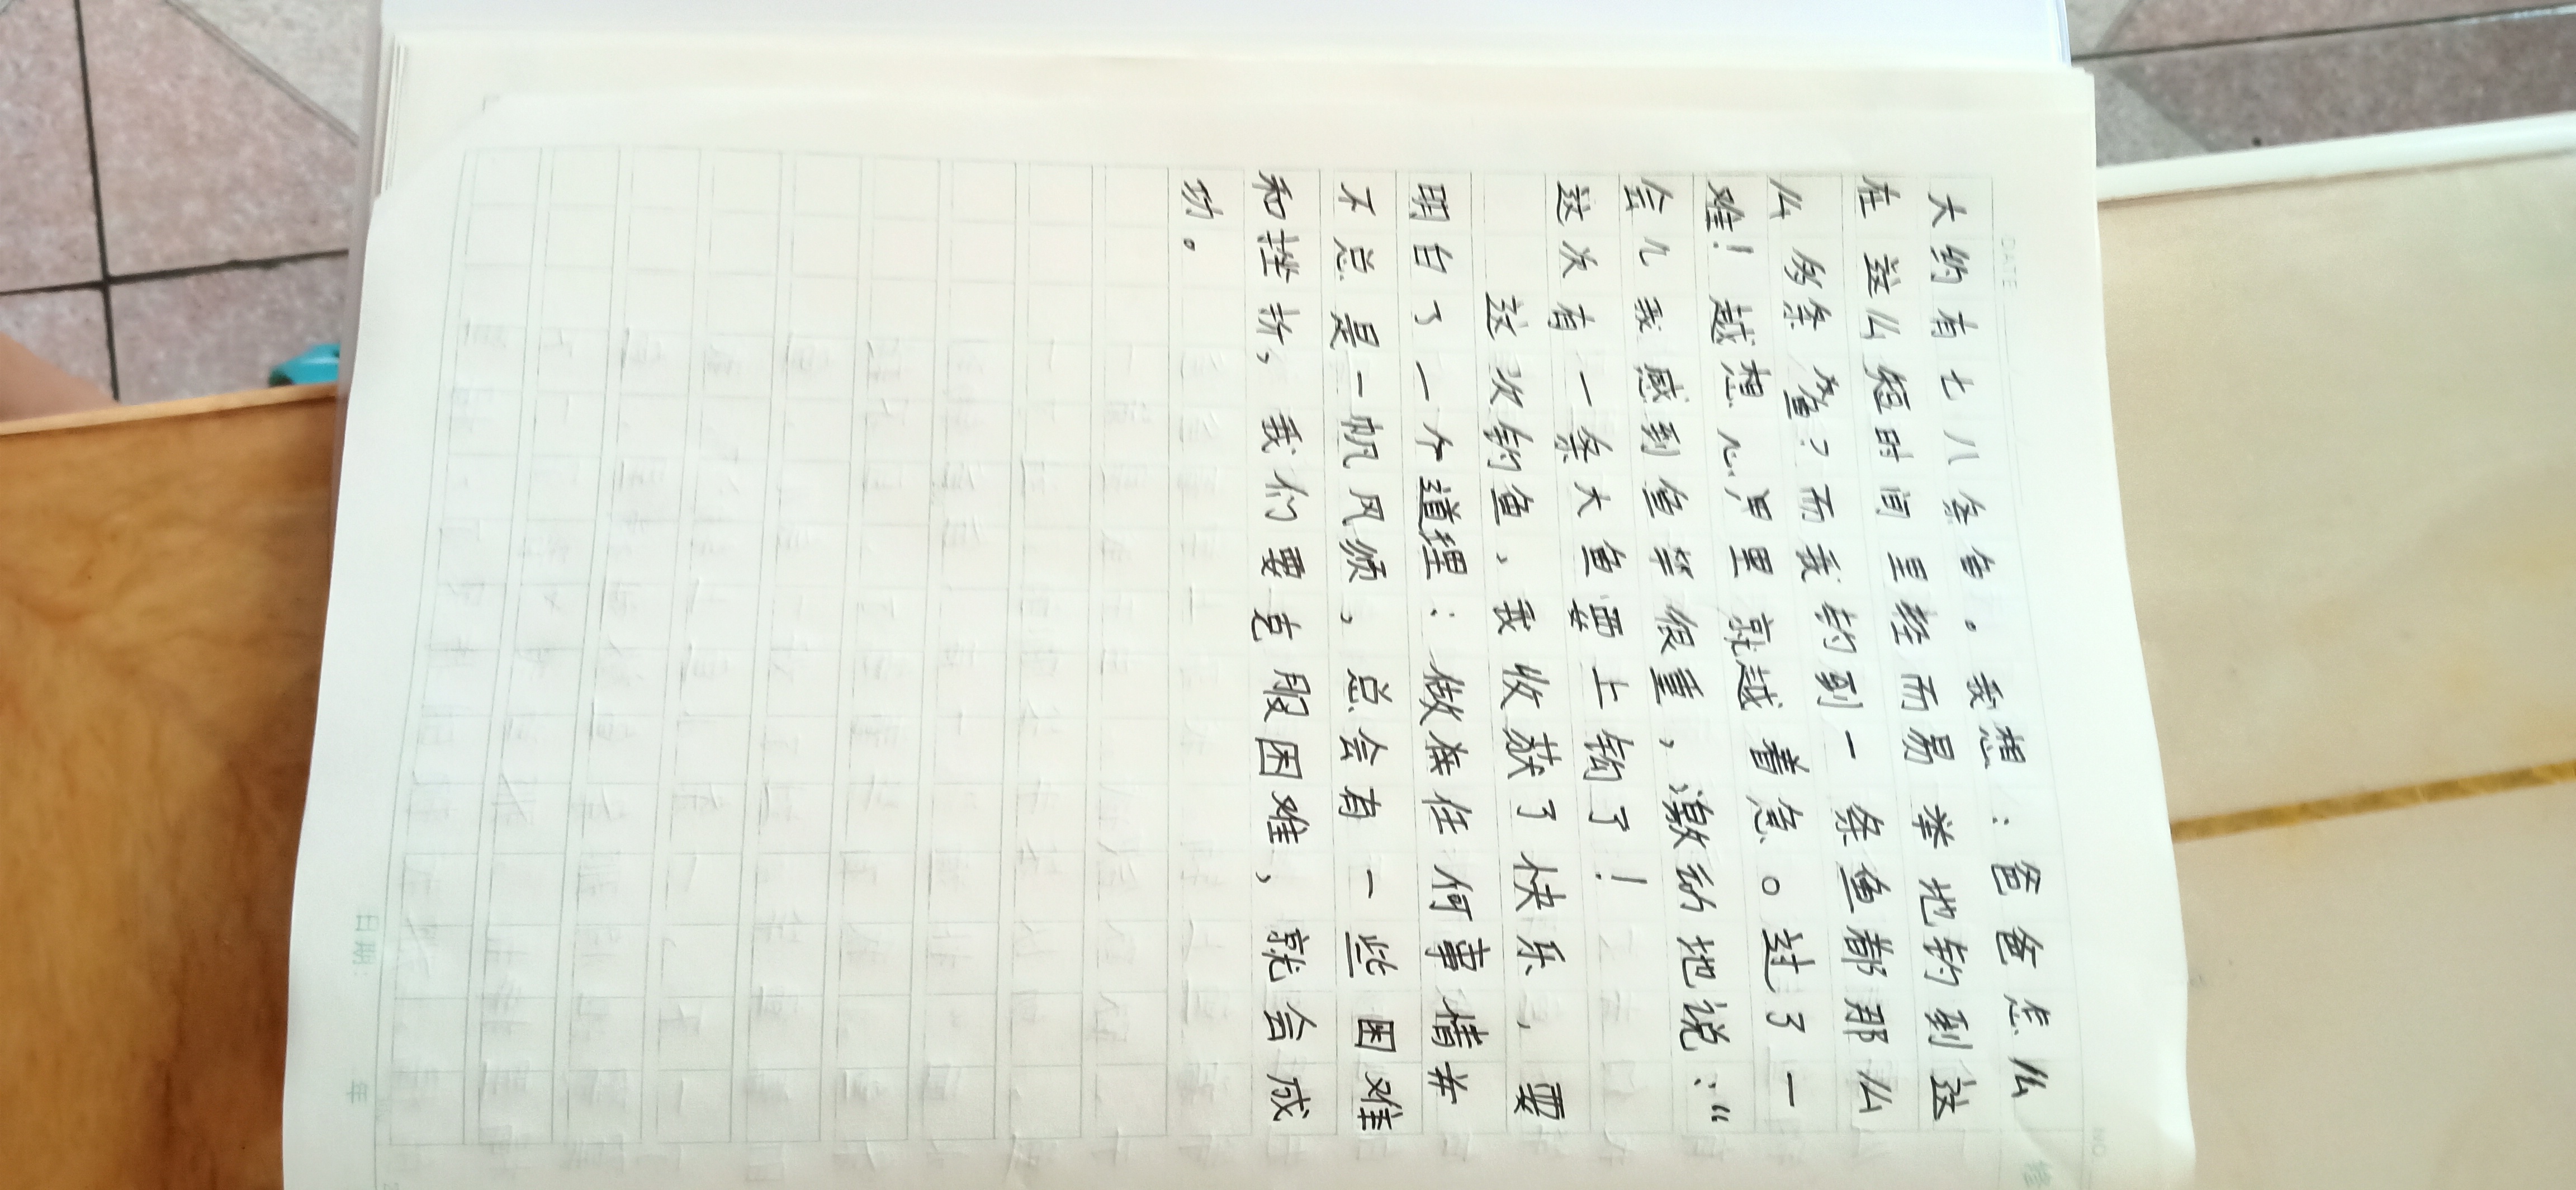 DATE
NO.
大约有七八条鱼。我想：爸爸怎么
在这么短时间里轻而易举地钓到这
么多条鱼？而我钓到一条鱼都那么
难！越想心里就越着急。过了一
会儿我感到鱼竿很重，激动地说：“
这次有一条大鱼要上钩了！
这次钓鱼、我收获了快乐，更
明白了一个道理：做任何事情并
不总是一帆风顺，总会有一些困难
和挫折，我们要克服困难，就会成
功。
日期
年